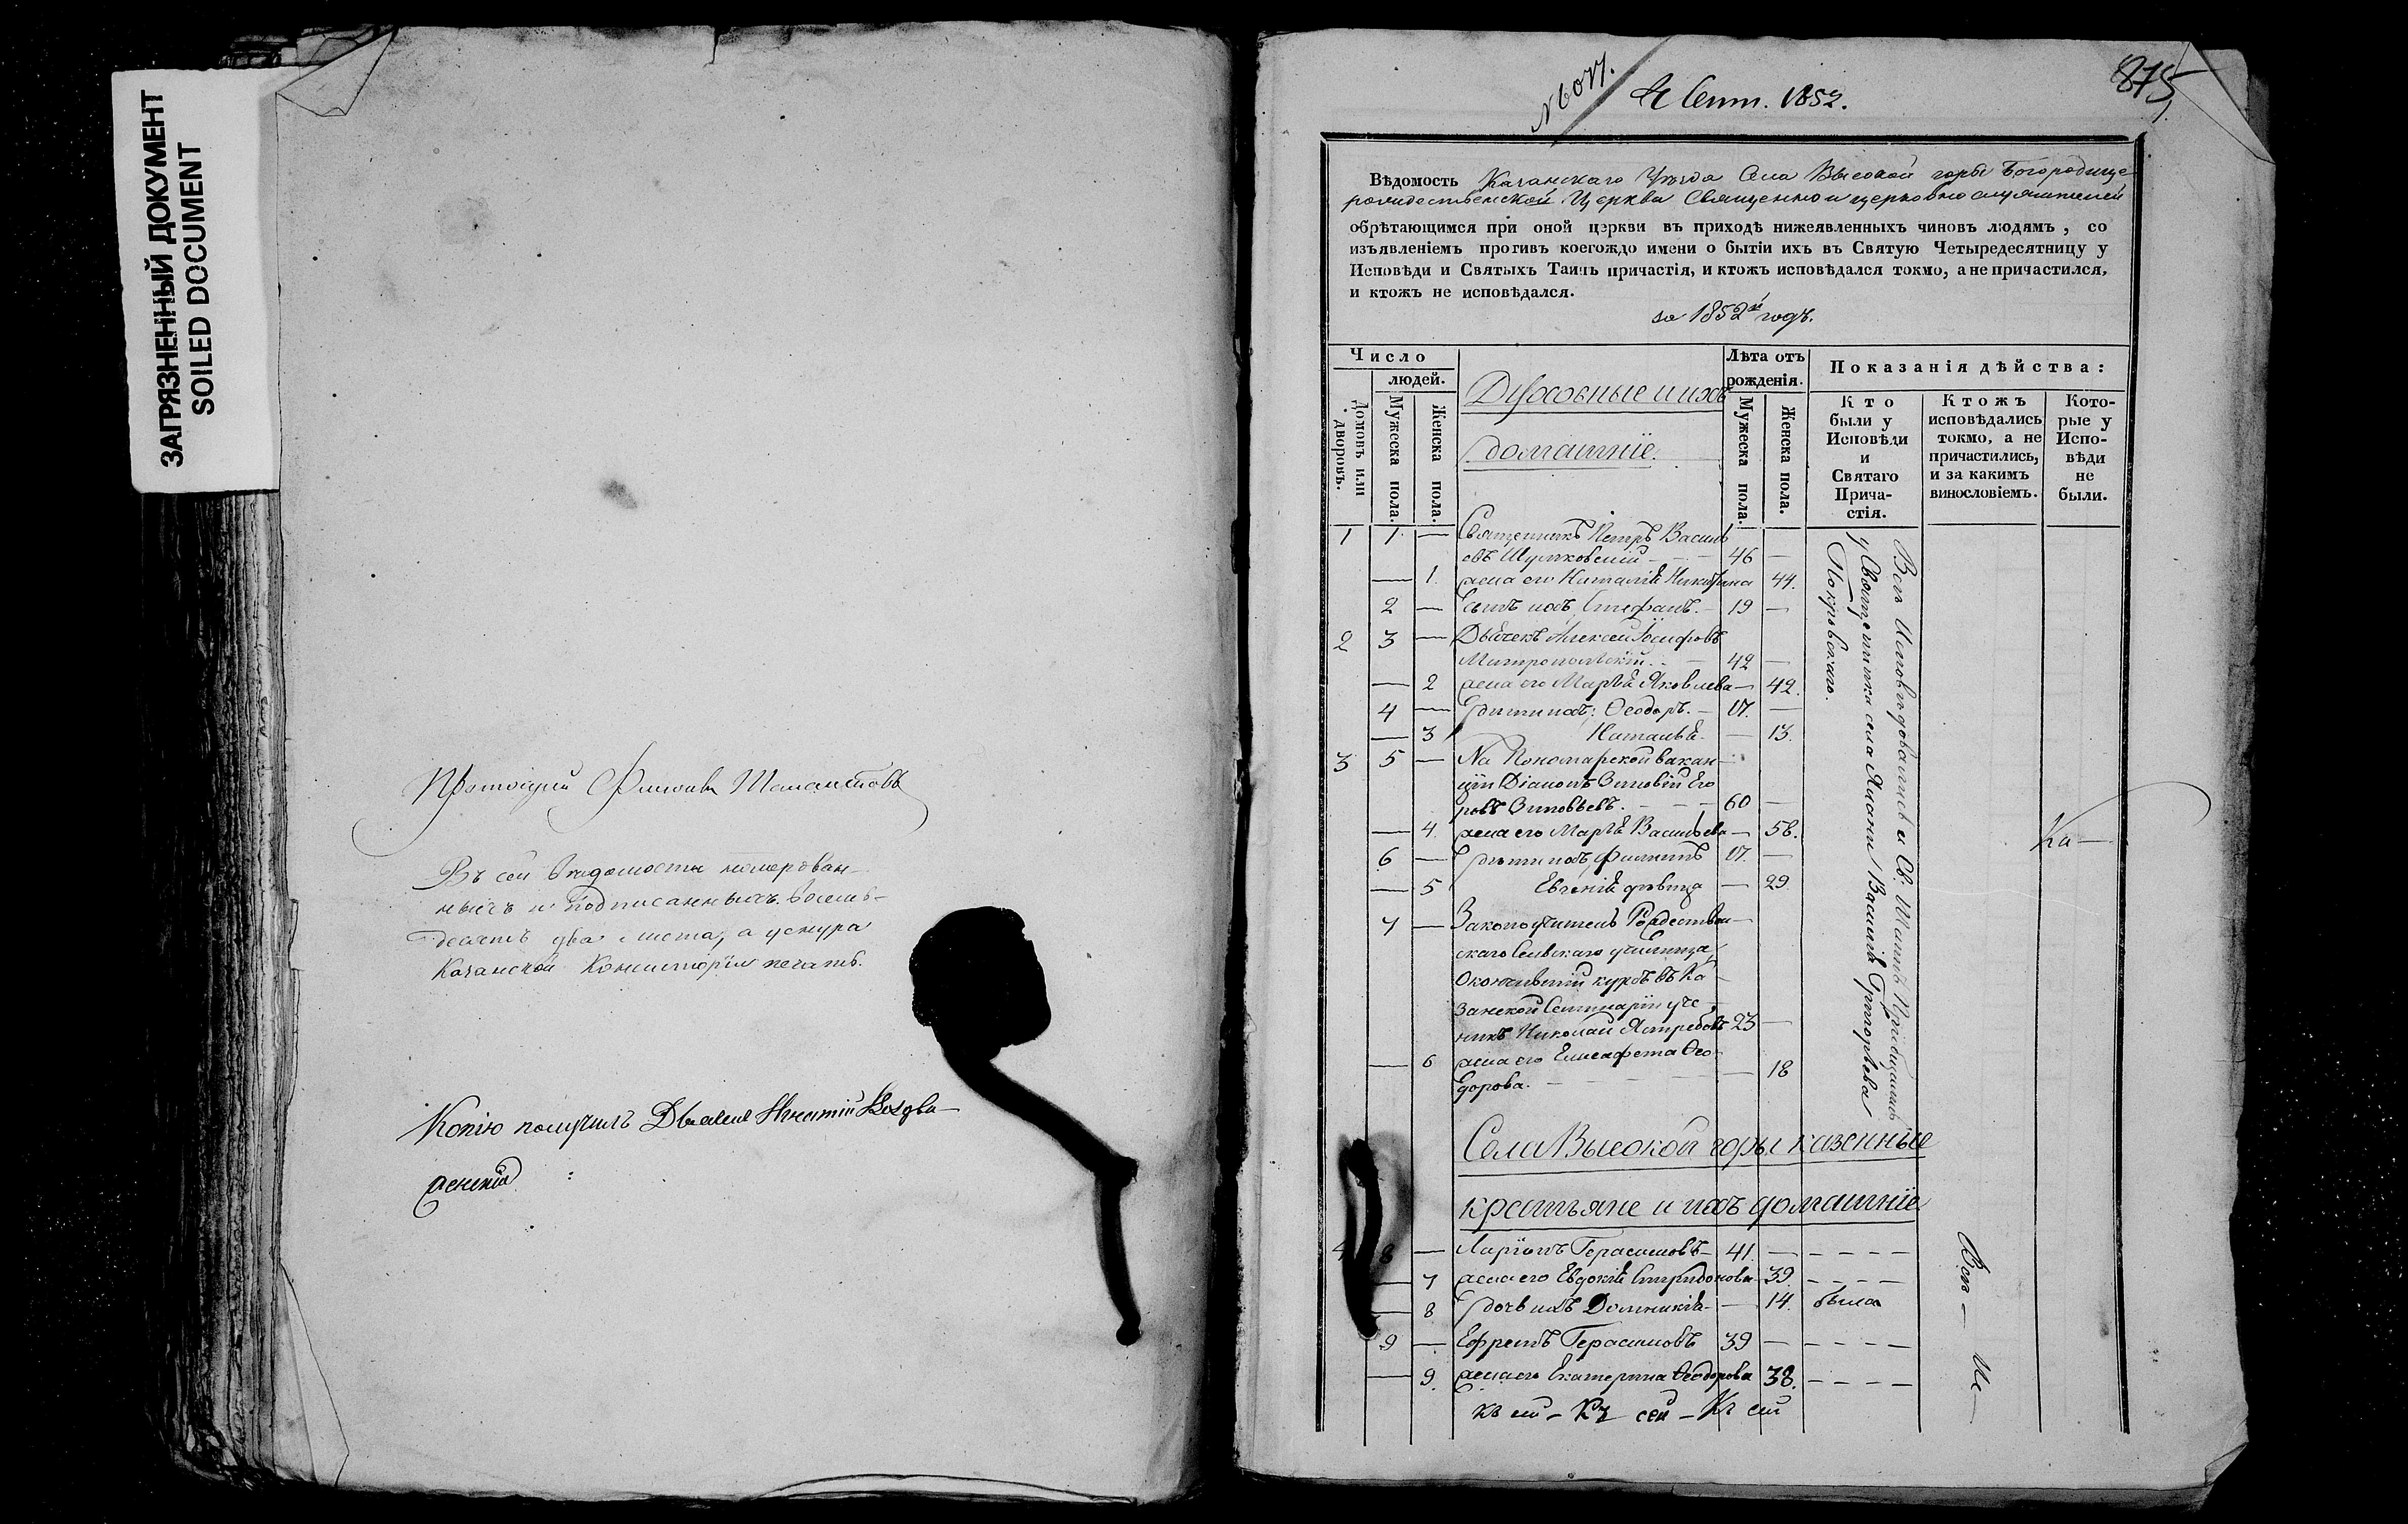 ЗАГРЯЗНЕННЫЙ ДОКУМЕНТ
SOILED DOCUMENT
Протоіерей
Въ сей Вѣдомости номерован-
ныхъ и подписанныхъ восемь-
десятъ два листа, а у снура
Казанской Консисторіи печать.
Копію получилъ Дьячекъ
875
4 Сент. 1852.
Вѣдомость Казанскаго Уѣзда Села Высокой горы Богородице
рождественской Церкви Священно и церковно служителей
обрѣтающимся при оной церкви въ приходѣ нижеявленныхъ чиновъ людямъ, со
изъявленіемъ противъ коегождо имени о бытіи ихъ въ Святую Четыредесятницу у
Исповѣди и Святыхъ Таинъ причастія, и ктожъ исповѣдался токмо, а не причастился,
и ктожъ не исповѣдался.
за 1852й годъ.
Число
людей.
Домовъ или дворовъ.
Мужеска пола.
Женска пола.
Духовные и ихъ
домашніе.
Лѣта отъ
рожденія.
Мужеска пола.
Женска пола.
Показанія дѣйства:
Кто
были у
Исповѣди
и
Святаго
Прича-
стія.
Ктожъ
исповѣдались
токмо, а не
причастились,
и за какимъ
винословіемъ.
Кото-
рые у
Испо-
вѣди
не
были.
1 1 — Священникъ Петръ Василь
евъ 46 —
— 1. жена его Наталія Никитина 44.
2 — Сынъ ихъ Стефанъ. 19 —
2 3 — Дьячекъ Алексей Іосифовъ
Митропольскій 42 —
— 2 жена его Марѳа Яковлева — 42.
4 — дѣти ихъ: Ѳеодоръ. 17. —
— 3 Наталья — 13.
3 5 — На Пономарской вакан-
ціи Діаконъ Зиновій Его
ровъ Зиновьевъ. 60 —
— 4. жена его Марѳа Васильева — 58.
6 — дѣти ихъ Филиппъ 17. —
— 5 Евгенія дѣвица — 29
7 — Законоучитель Рождествен-
скаго Сельскаго училища,
Окончившій курсъ въ Ка-
занской Семинаріи уче-
никъ Николай Ястребовъ 23 —
— 6 жена его Елисафета Ѳео-
дорова. — 18
Всѣ Исповѣдовались и Св. Таинъ Пріобщались
у Священника села Василія Григорьева
Покровскаго.
Ка—
Села Высокой горы казенные
крестьяне и ихъ домашніе
4 8 — Ларіонъ Герасимовъ 41. — — — — —
— 7 жена его Евдокія Спиридонова 39. — — — —
— 8 дочь ихъ Домникія — 14. была
9 — Ефремъ Герасимовъ 39 — — — — —
— 9. жена его Екатерина Ѳеодорова 38. — — — —
Къ сей — Къ сей — Къ сей